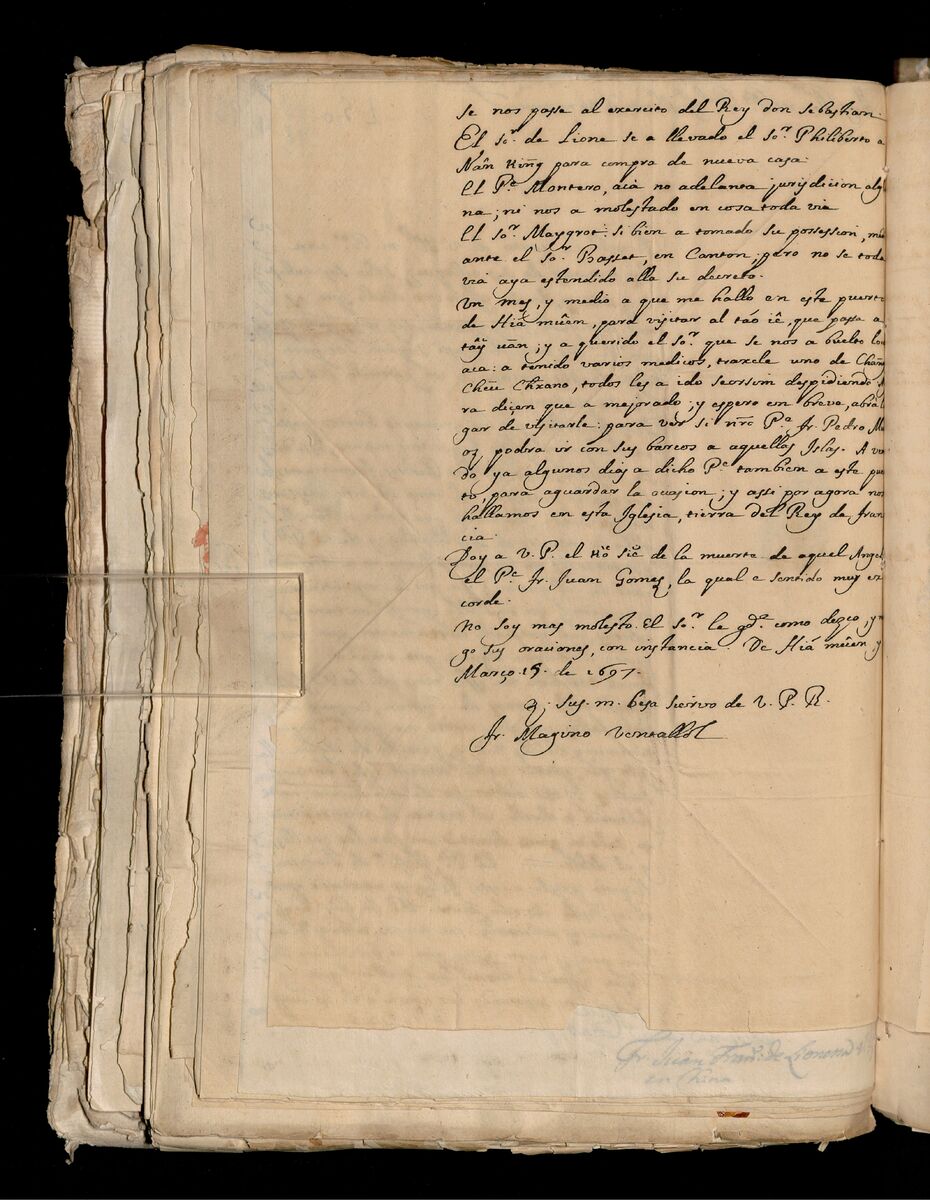 se nos passe al exercito del Rey don sebastian.
El so.r de Lione se a llevado el so.r Philiberto a
Nân Kiñg para compra de nueva casa.
El P.e Montero, acà no adelanta jurysdicion alg
na; ni nos a molestado en cosa toda via
El so.r Maygrot: si bien a tomado su possession, me
ante el so.r Basset, en Canton; pero no se toda
via aya estendido alla su decreto.
Vn mes, y medio a que me hallo en este puert
de Hiá muên, para visitar al táo iê, que passa a
tâŷ uān; y a querido el so.r que se nos a buelto lo
aca: a tenido varios medicos, traxele uno de Chañ
Cheū Chr̃ano, todos les a ido seorsim despidiendo. A
ra diçen que a mejorado; y espero en breve, abra l
gar de visitarle: para ver si nr̃o P.e fr. Pedro Mu
oz, podra ir con sus barcos a aquellas Islas. A ven
do ya algunos dias a dicho P.e tambien a este pue
to, para aguardar la ocasion; y assi por agora nos
hallamos en esta Iglesia, tierra del Rey de fran
cia.
Doy a V. P. el de la muerte de aquel Angel
el P.e fr. Juan Gomez, la qual e sentido muy ex
corde.
No soy mas molesto. El so.r le gd.e como deseo, y
go sus oraciones, con instancia. De Hiá muên y
Março. 15. de 1697.
q. sus. m. besa siervo de V. P. R.
fr. Magino Ventallol
Fr. Juan Fran.co de Leonessa
en China